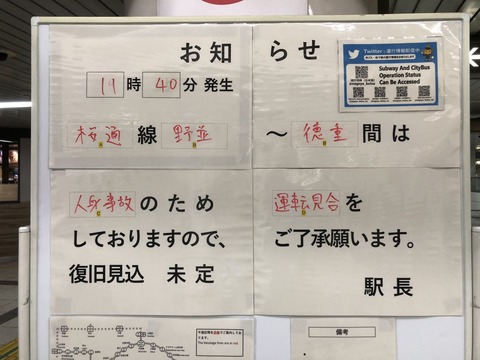 お知らせ
11時40分発生
桜通線野並～徳重間は
人身事故のため 運転見合を
しておりますので、ご了承願います。
復旧見込 未定 駅長
Twitter・運行情報配信中
Subway And CityBus
Operation Status
Can Be Accessed
備考